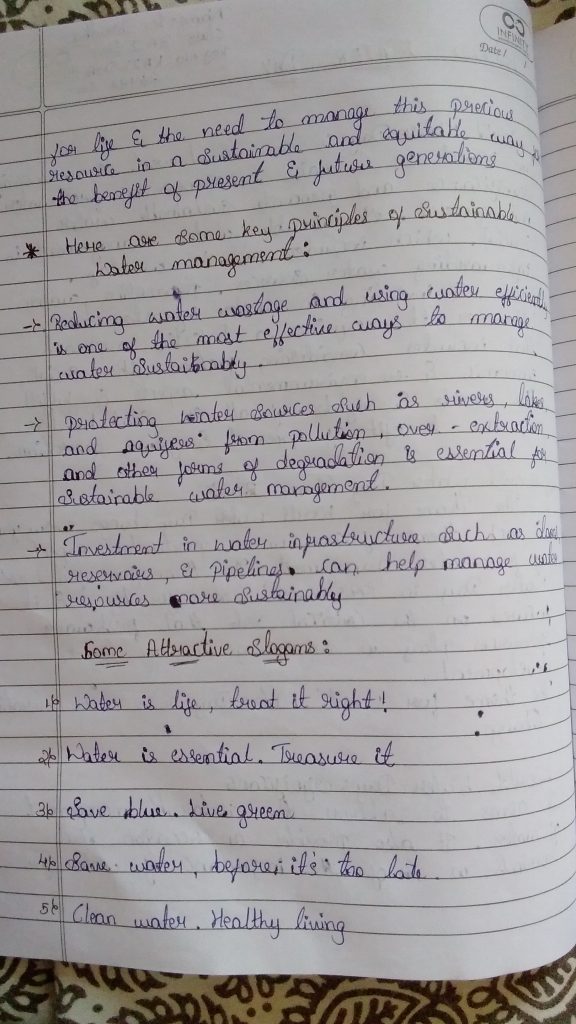 INFINITY
Date /  /
for life & the need to manage this precious
resource in a sustainable and equitable way for
the benefit of present & future generations
* Here are some key principles of sustainable
Water management :
→ Reducing water wastage and using water efficiently
is one of the most effective ways to manage
water sustaitonably.
→ protecting water sources such as rivers, lakes,
and aquifers from pollution, over-extraction,
and other forms of degradation is essential for
sustainable water management.
→ Investment in water infrastructure such as
reservoirs, & Pipelines. can help manage water
resources more sustainably
Some Attractive Slogans :
1) Water is life, treat it right!
2) Water is essential. Treasure it
3) Save blue. Live green
4) Save water, before, it's too late.
5) Clean water. Healthy living